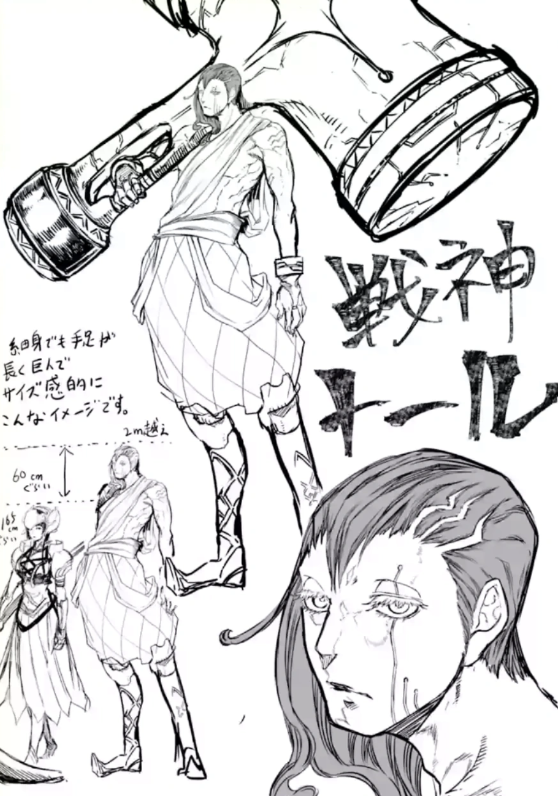 戦神
トール
細身でも手足が
長く巨人で
サイズ感的に
こんなイメージです。
2m越え
60cm
ぐらい
165
cm
ぐらい